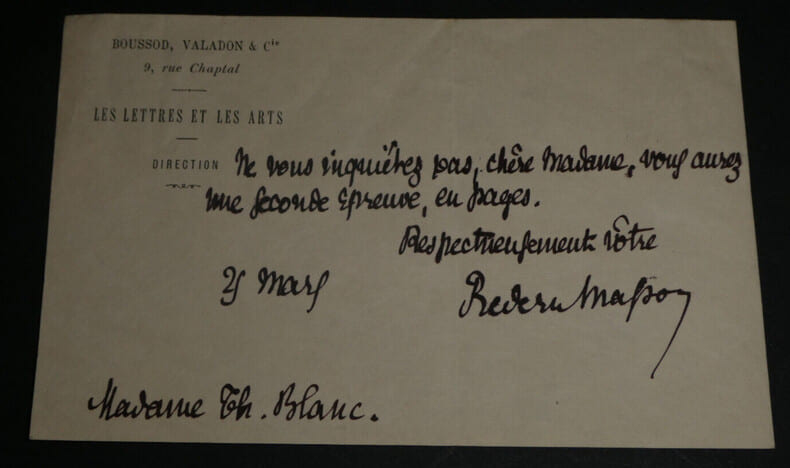 BOUSSOD, VALADON & Cie
9, rue Chaptal
LES LETTRES ET LES ARTS
DIRECTION
Ne vous inquiétez pas, chère Madame, vous aurez
une seconde épreuve, en pages.
Respectueusement vôtre
25 Mars
Frédéric Masson
Madame Th. Blanc.